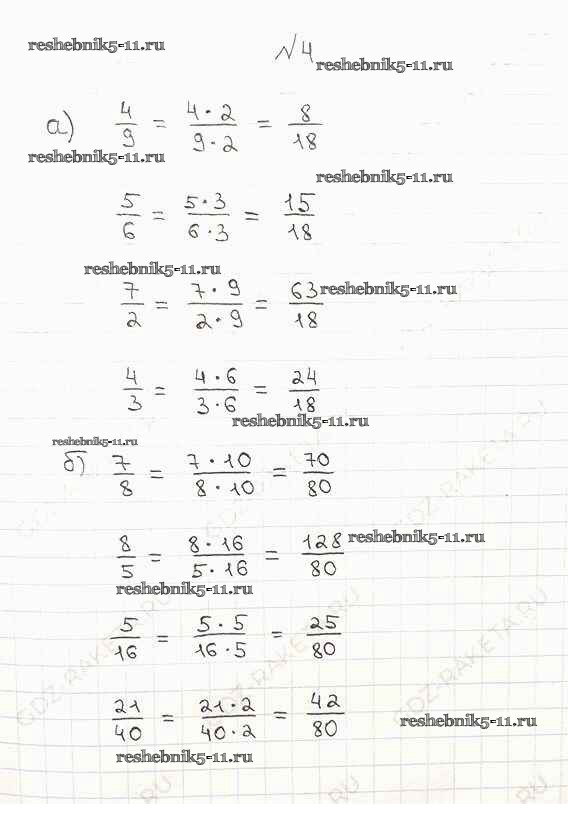 reshebnik5-11.ru
№ 4
reshebnik5-11.ru
а) 4/9 = 4 · 2/9 · 2 = 8/18
reshebnik5-11.ru
reshebnik5-11.ru
5/6 = 5 · 3/6 · 3 = 15/18
reshebnik5-11.ru
7/2 = 7 · 9/2 · 9 = 63/18
reshebnik5-11.ru
4/3 = 4 · 6/3 · 6 = 24/18
reshebnik5-11.ru
reshebnik5-11.ru
б) 7/8 = 7 · 10/8 · 10 = 70/80
8/5 = 8 · 16/5 · 16 = 128/80
reshebnik5-11.ru
reshebnik5-11.ru
5/16 = 5 · 5/16 · 5 = 25/80
21/40 = 21 · 2/40 · 2 = 42/80
reshebnik5-11.ru
reshebnik5-11.ru
GDZ-RAKETA.RU
GDZ-RAKETA.RU
GDZ-RAKETA.RU